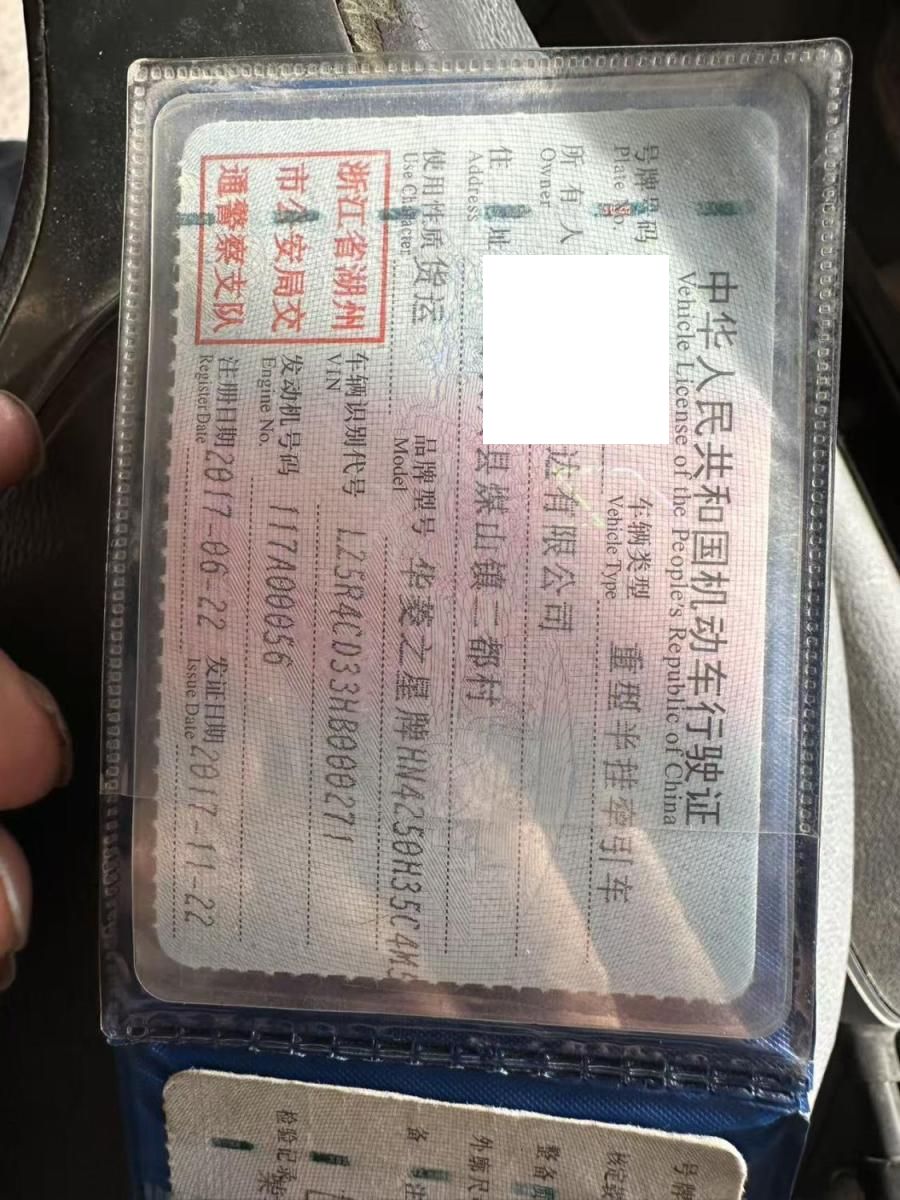 中华人民共和国机动车行驶证
Vehicle License of the People's Republic of China
号牌号码
Plate No.
车辆类型 重型半挂牵引车
Vehicle Type
所有人 有限公司
Owner
住址 县煤山镇二都村
Address
使用性质 货运
Use Character
品牌型号 华菱之星牌HN4250H35C4M5
Model
浙江省湖州
市公安局交
通警察支队
车辆识别代号 LZ5R4CD33HB000271
VIN
发动机号码 117A00056
Engine No.
注册日期 2017-06-22
Register Date
发证日期 2017-11-22
Issue Date
号牌
核定载
整备
外廓尺
备 注
检验记录